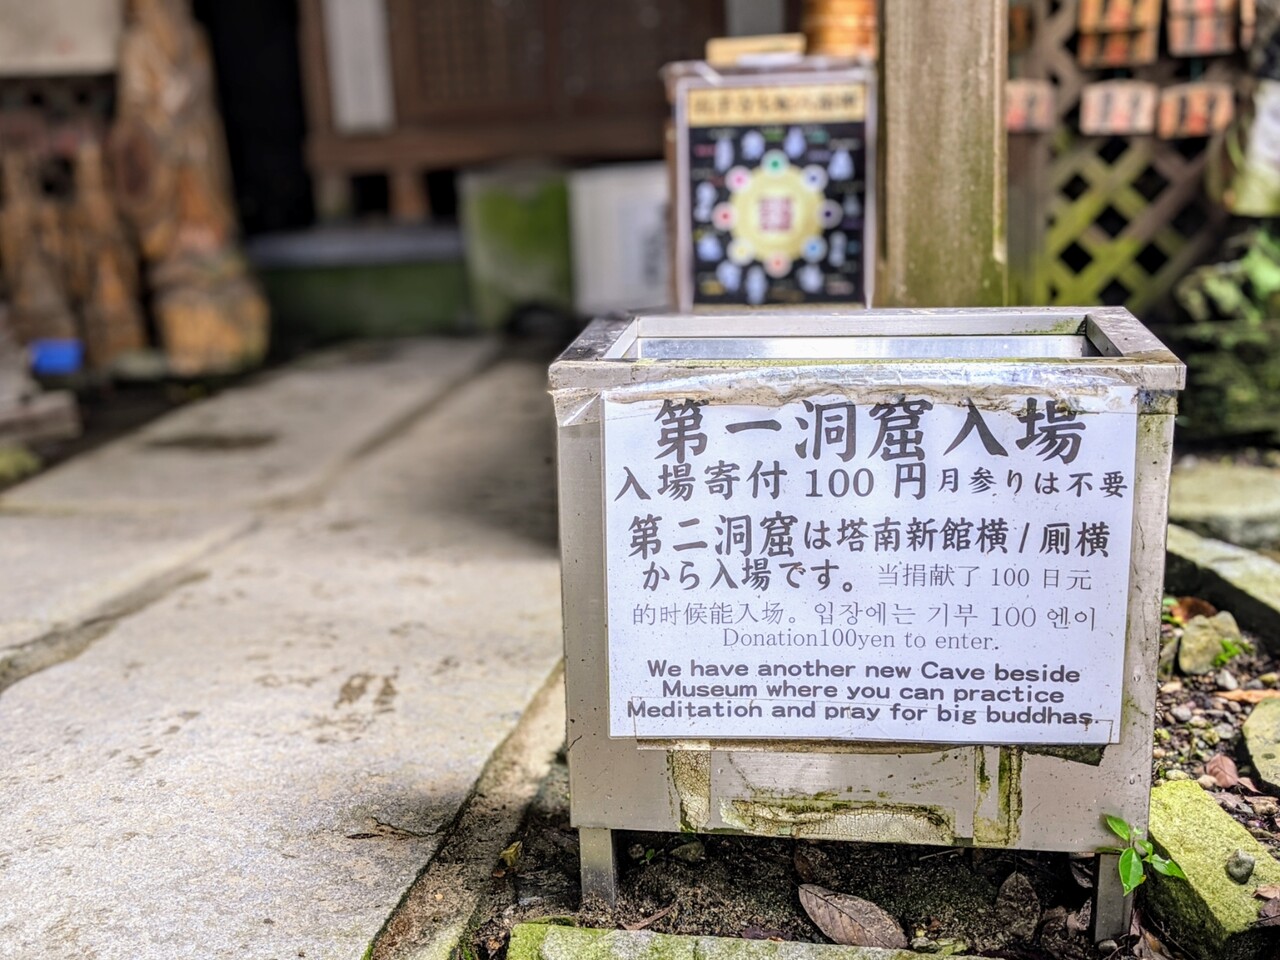 第一洞窟入場
入場寄付 100 円 月参りは不要
第二洞窟は塔南新館横 / 厠横
から入場です。 当捐献了 100 日元
的时候能入场。입장에는 기부 100 엔이
Donation100yen to enter.
We have another new Cave beside
Museum where you can practice
Meditation and pray for big buddhas.